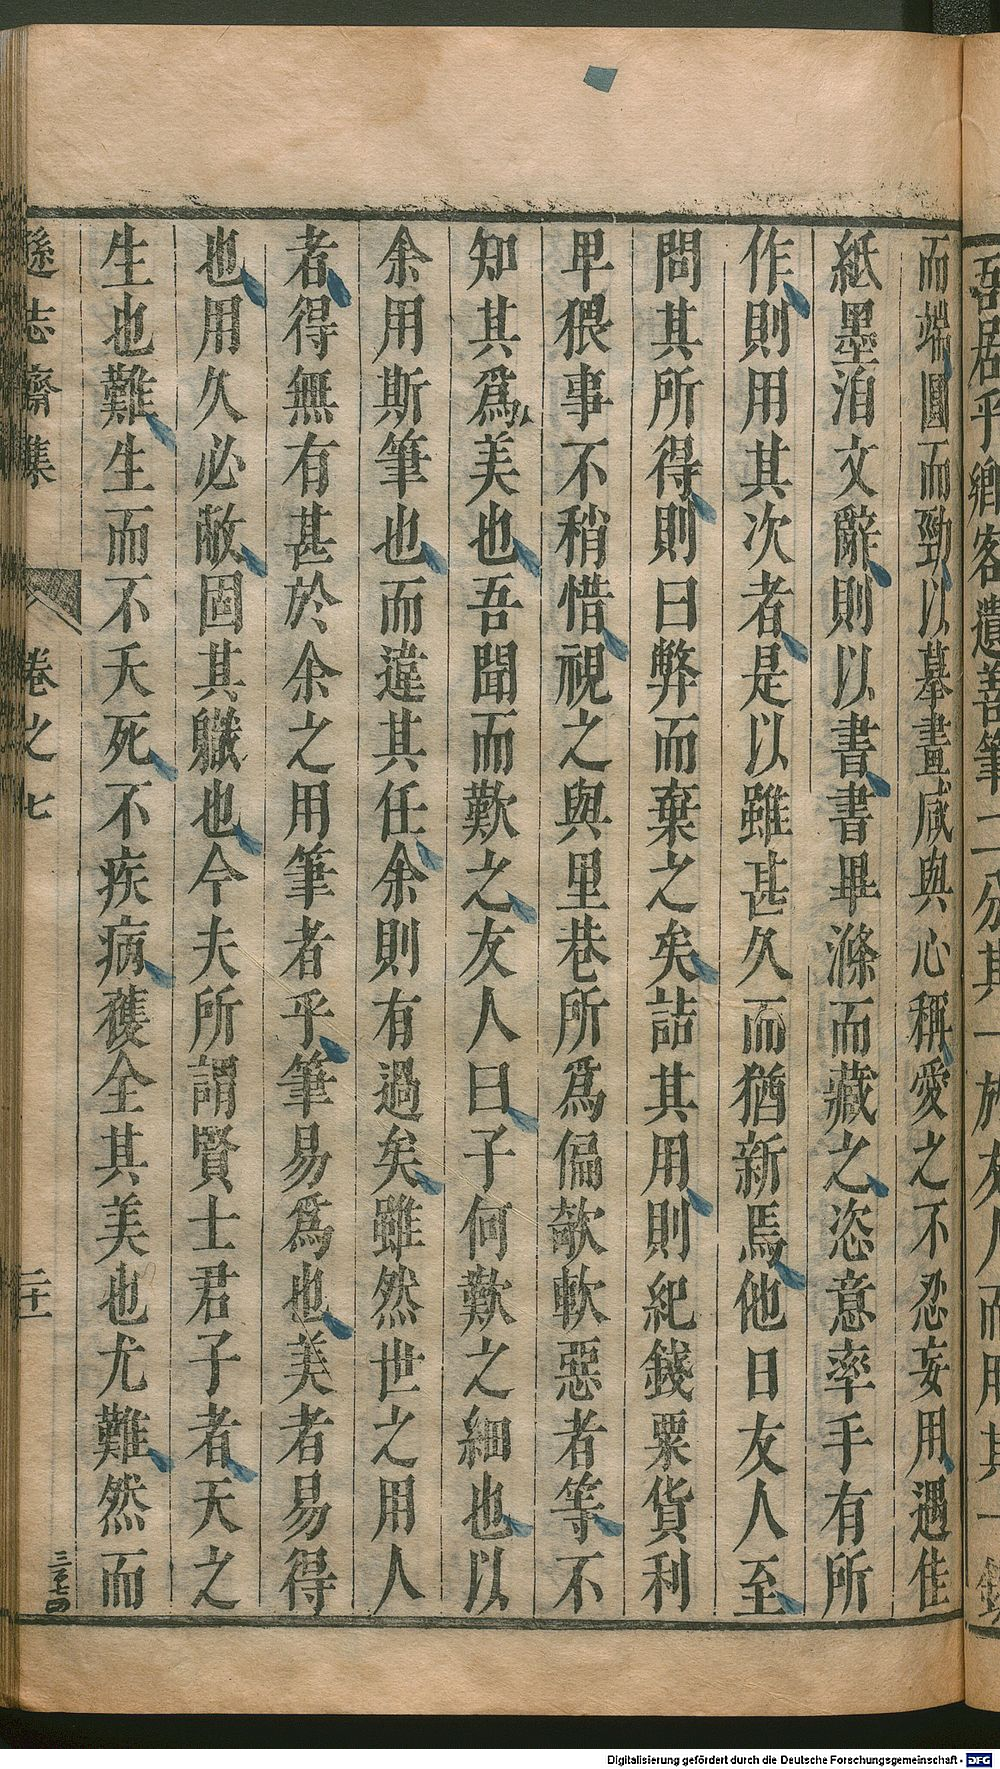 吾居乎鄉客遺善筆二分其一於友人而用其一
而端圓而勁以摹畫咸與心稱愛之不忍妄用遇佳
紙墨洎文辭則以書書畢滌而藏之恣意率手有所
作則用其次者是以雖甚久而猶新焉他日友人至
問其所得則曰弊而棄之矣詰其用則紀錢粟貨利
卑猥事不稍惜視之與里巷所爲偏欹軟惡者等不
知其爲美也吾聞而歎之友人曰子何歎之細也以
余用斯筆也而違其任余則有過矣雖然世之用人
者得無有甚於余之用筆者乎筆易爲也美者易得
也用久必敝固其職也今夫所謂賢士君子者天之
生也難生而不夭死不疾病獲全其美也尤難然而
遜志齋集 卷之七 二十一
Digitalisierung gefördert durch die Deutsche Forschungsgemeinschaft - DFG